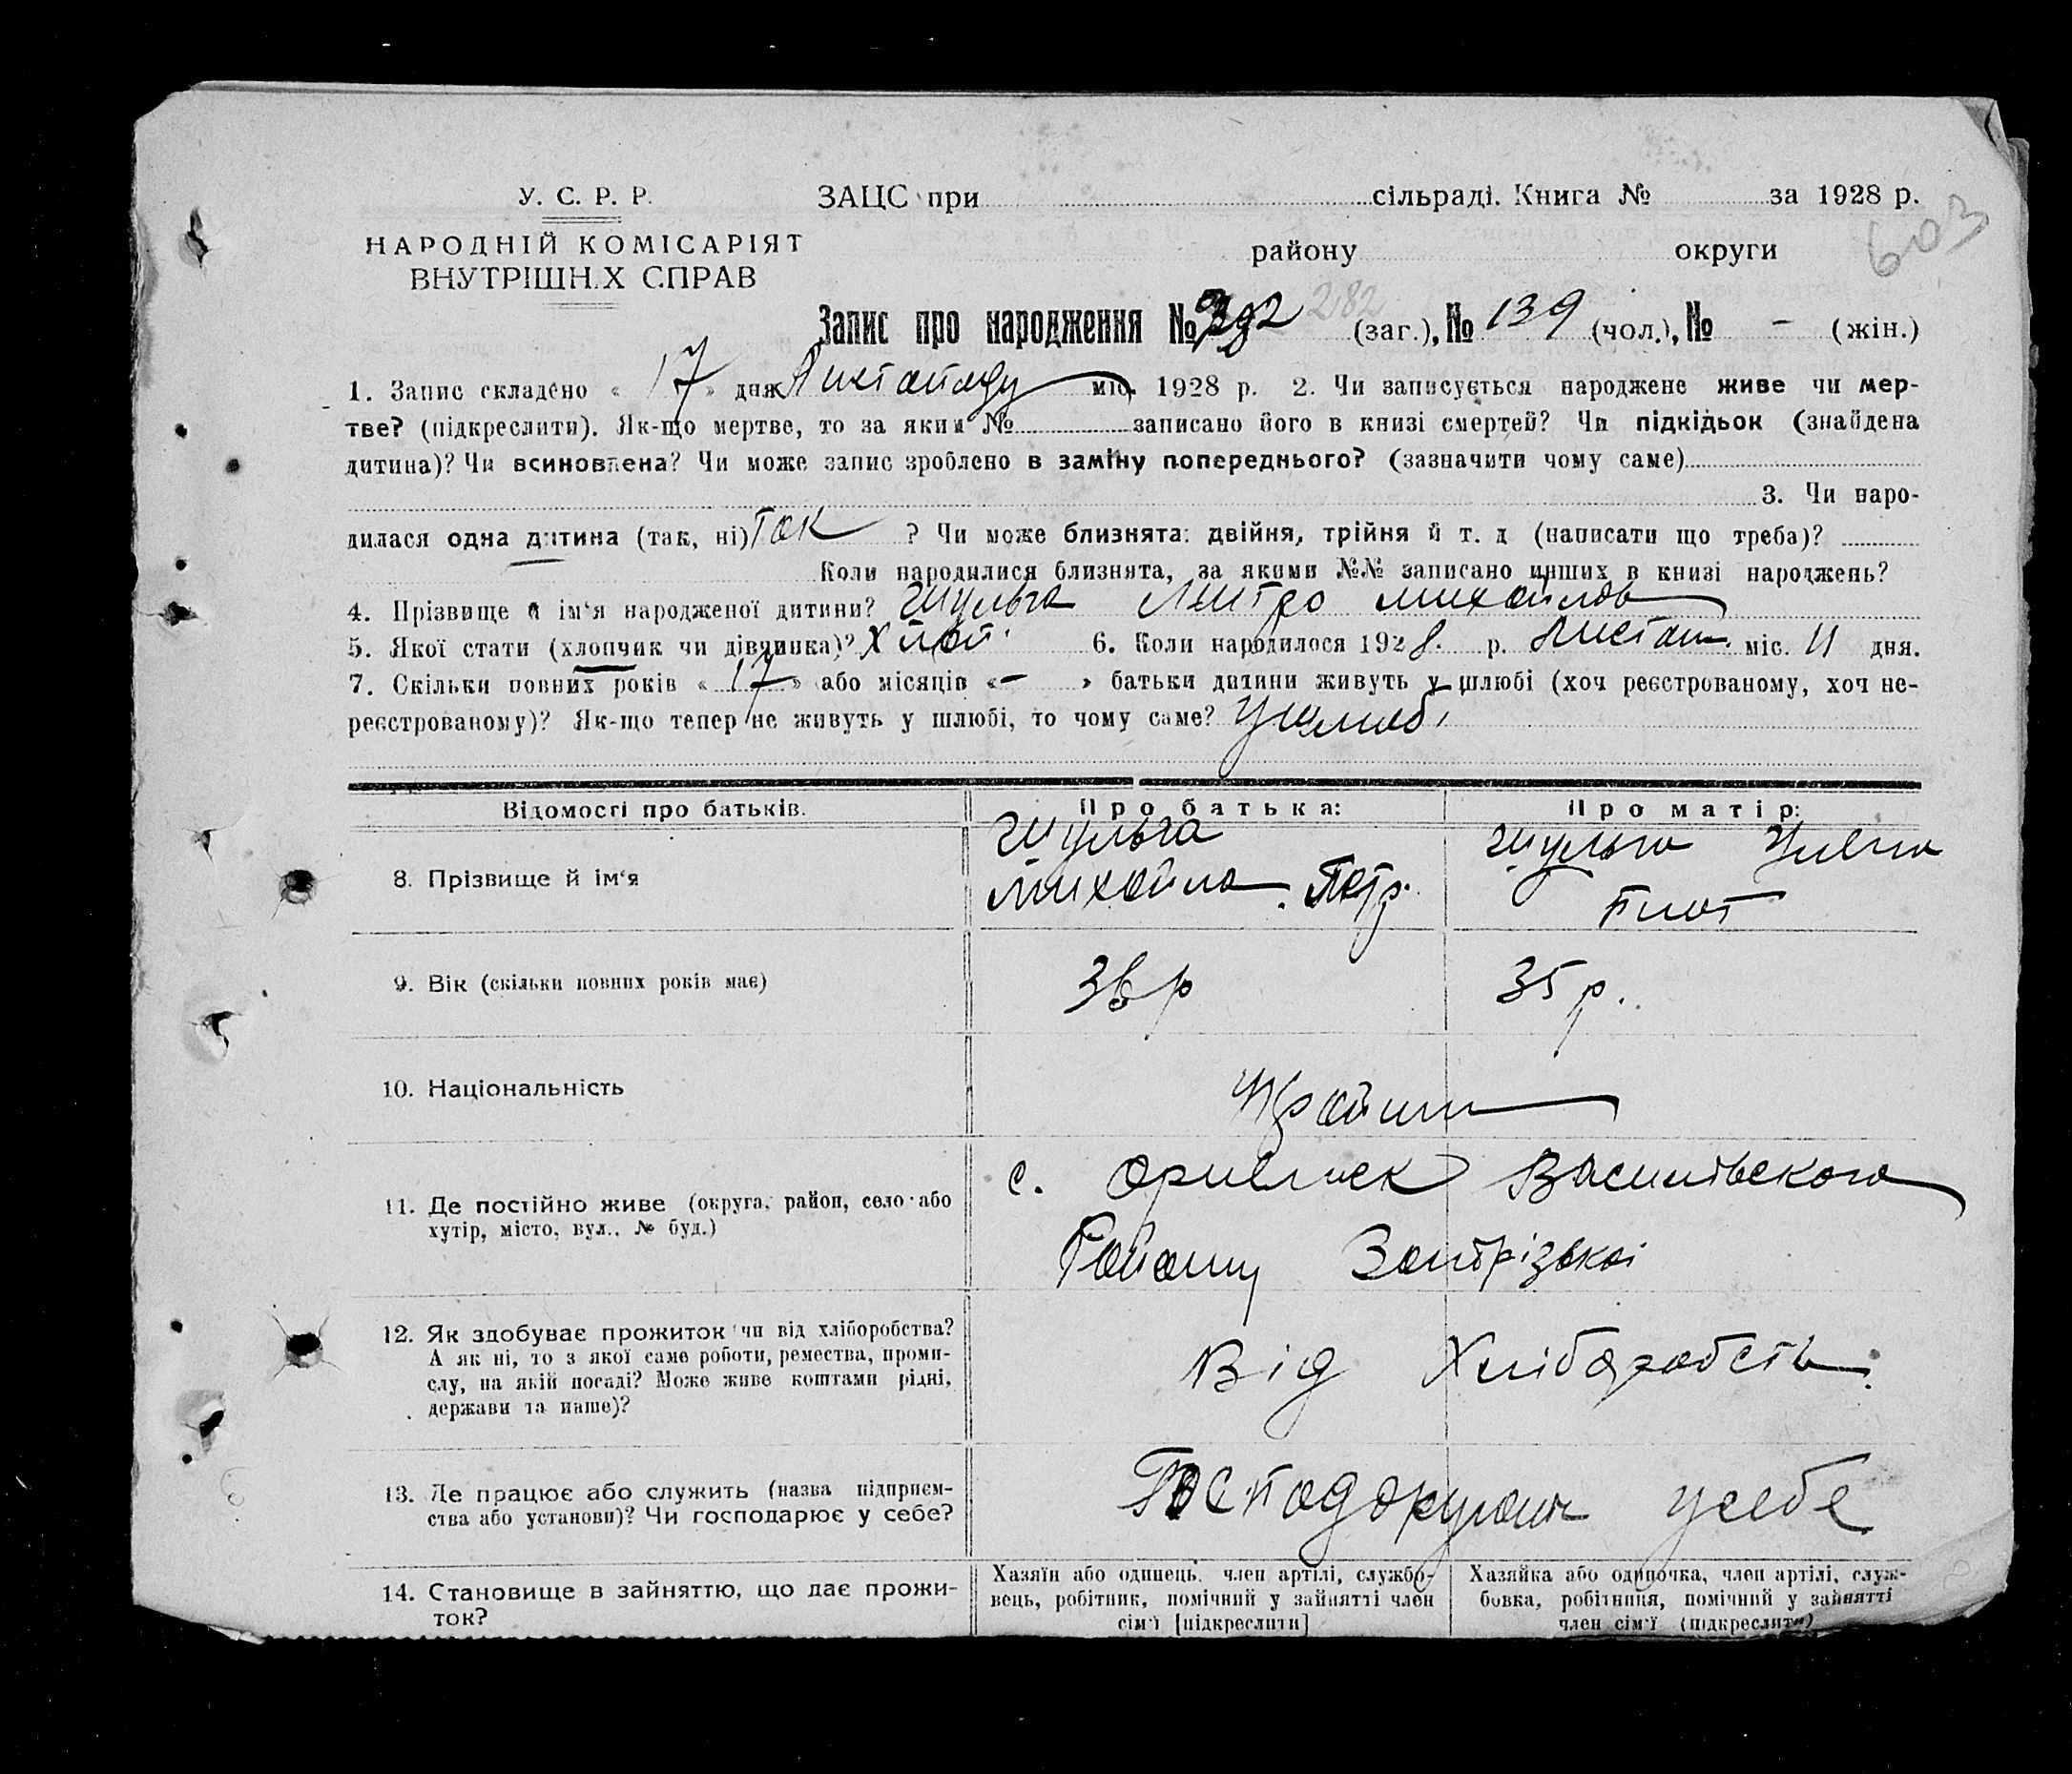 У. С. Р. Р.
НАРОДНІЙ КОМІСАРІЯТ
ВНУТРІШН.Х СПРАВ
ЗАЦС при сільраді. Книга № за 1928 р.
603
району округи
Запис про народження № 282 (заг.), № 139 (чол.), № - (жін.)
1. Запис складено « 17 » дня Листопаду міс. 1928 р. 2. Чи записується народжене живе чи мер-
тве? (підкреслити). Як-що мертве, то за яким № записано його в книзі смертей? Чи підкідьок (знайдена
дитина)? Чи всиновлена? Чи може запис зроблено в заміну попереднього? (зазначити чому саме)
3. Чи наро-
дилася одна дитина (так, ні) Так ? Чи може близнята: двійня, трійня й т. д (написати що треба)?
Коли народилися близнята, за якими №№ записано инших в книзі народжень?
4. Прізвище й ім‘я народженої дитини? Шульга Дмитро Михайлов
5. Якої стати (хлопчик чи дівчинка)? Хлоп. 6. Коли народилося 1928. р. Листоп. міс. 11 дня.
7. Скільки повних років « 17 » або місяців « – » батьки дитини живуть у шлюбі (хоч реєстрованому, хоч не-
реєстрованому)? Як-що тепер не живуть у шлюбі, то чому саме? у шлюбі
Відомості про батьків. Про батька: Про матір:
8. Прізвище й ім‘я
Шульга
Михайло Петр.
Шульга
9. Вік (скільки повних років має) 36 р 35 р.
10. Національність Україн
11. Де постійно живе (округа, район, село або
хутір, місто, вул., № буд.)
с. Василівського
Району Запорізької
12. Як здобуває прожиток чи від хліборобства?
А як ні, то з якої саме роботи, ремества, проми-
слу, на якій посаді? Може живе коштами рідні,
держави та инше)?
Від Хліборобств.
13. Де працює або служить (назва підприєм-
ства або установи)? Чи господарює у себе?
усебе
14. Становище в зайняттю, що дає прожи-
ток?
Хазяїн або одинець, член артілі, службо-
вець, робітник, помічний у зайнятті член
сім‘ї [підкреслити]
Хазяйка або одиночка, член артілі, служ-
бовка, робітниця, помічний у зайнятті
член сім‘ї (підкреслити)